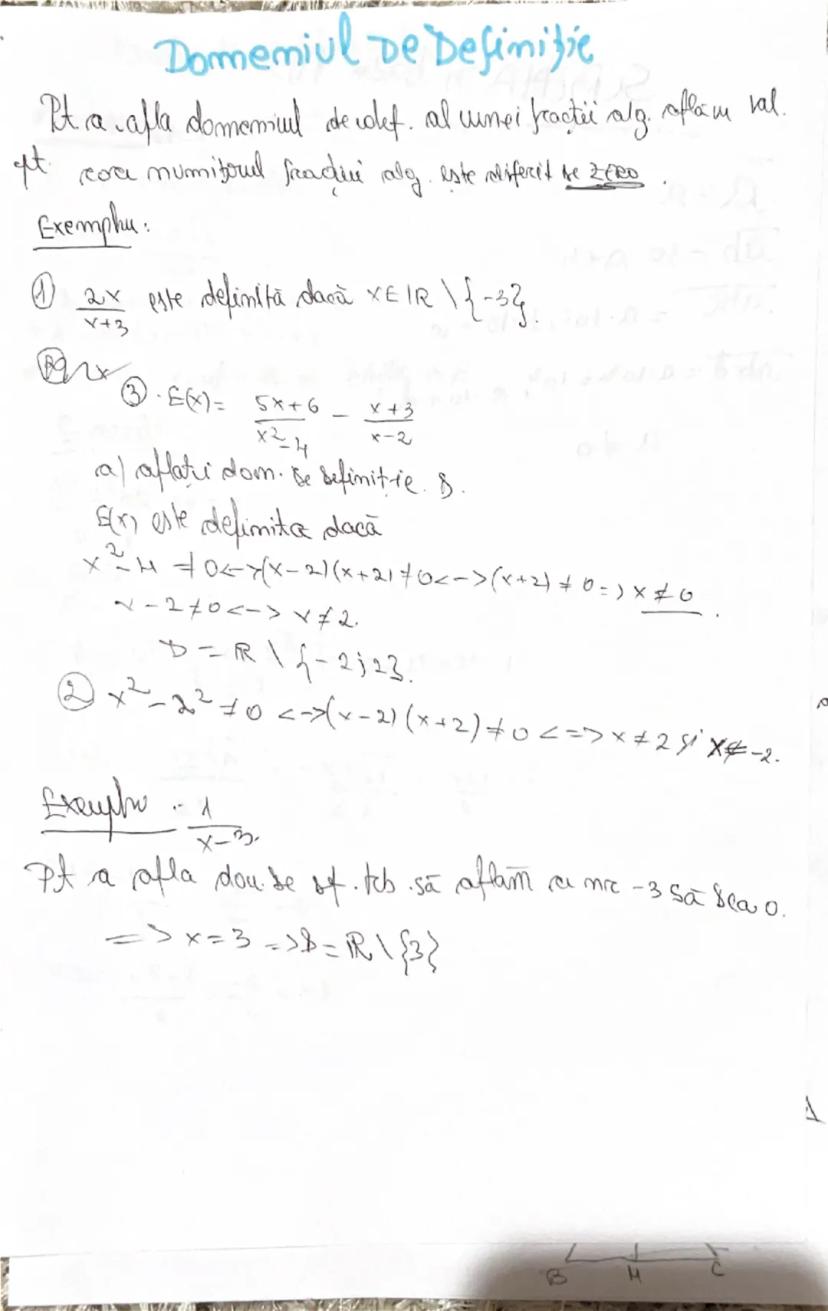 Domeniul De Definiție
Pt a afla domeniul de def. al unei fracții alg. aflăm val.
pt. care numitorul fracției alg. este diferit de ZERO.
Exemplu:
① 2x/x+3 este definită dacă x∈ℝ\{-3}.
③. E(x)= 5x+6/x²-4 - x+3/x-2
a) aflați dom. de definiție D.
E(x) este definita dacă
x²-4 ≠0<->(x-2)(x+2)≠0<->(x+2)≠0=>x≠0.
x-2≠0<->x≠2.
D=ℝ\{-2;2}.
② x²-2²≠0<->(x-2)(x+2)≠0<=>x≠2 și x≠-2.
Exemplu: 1/x-3.
Pt a afla dom. de df. tcb. să aflăm -3 să dea 0.
=>x=3=>D=ℝ\{3}
B M C